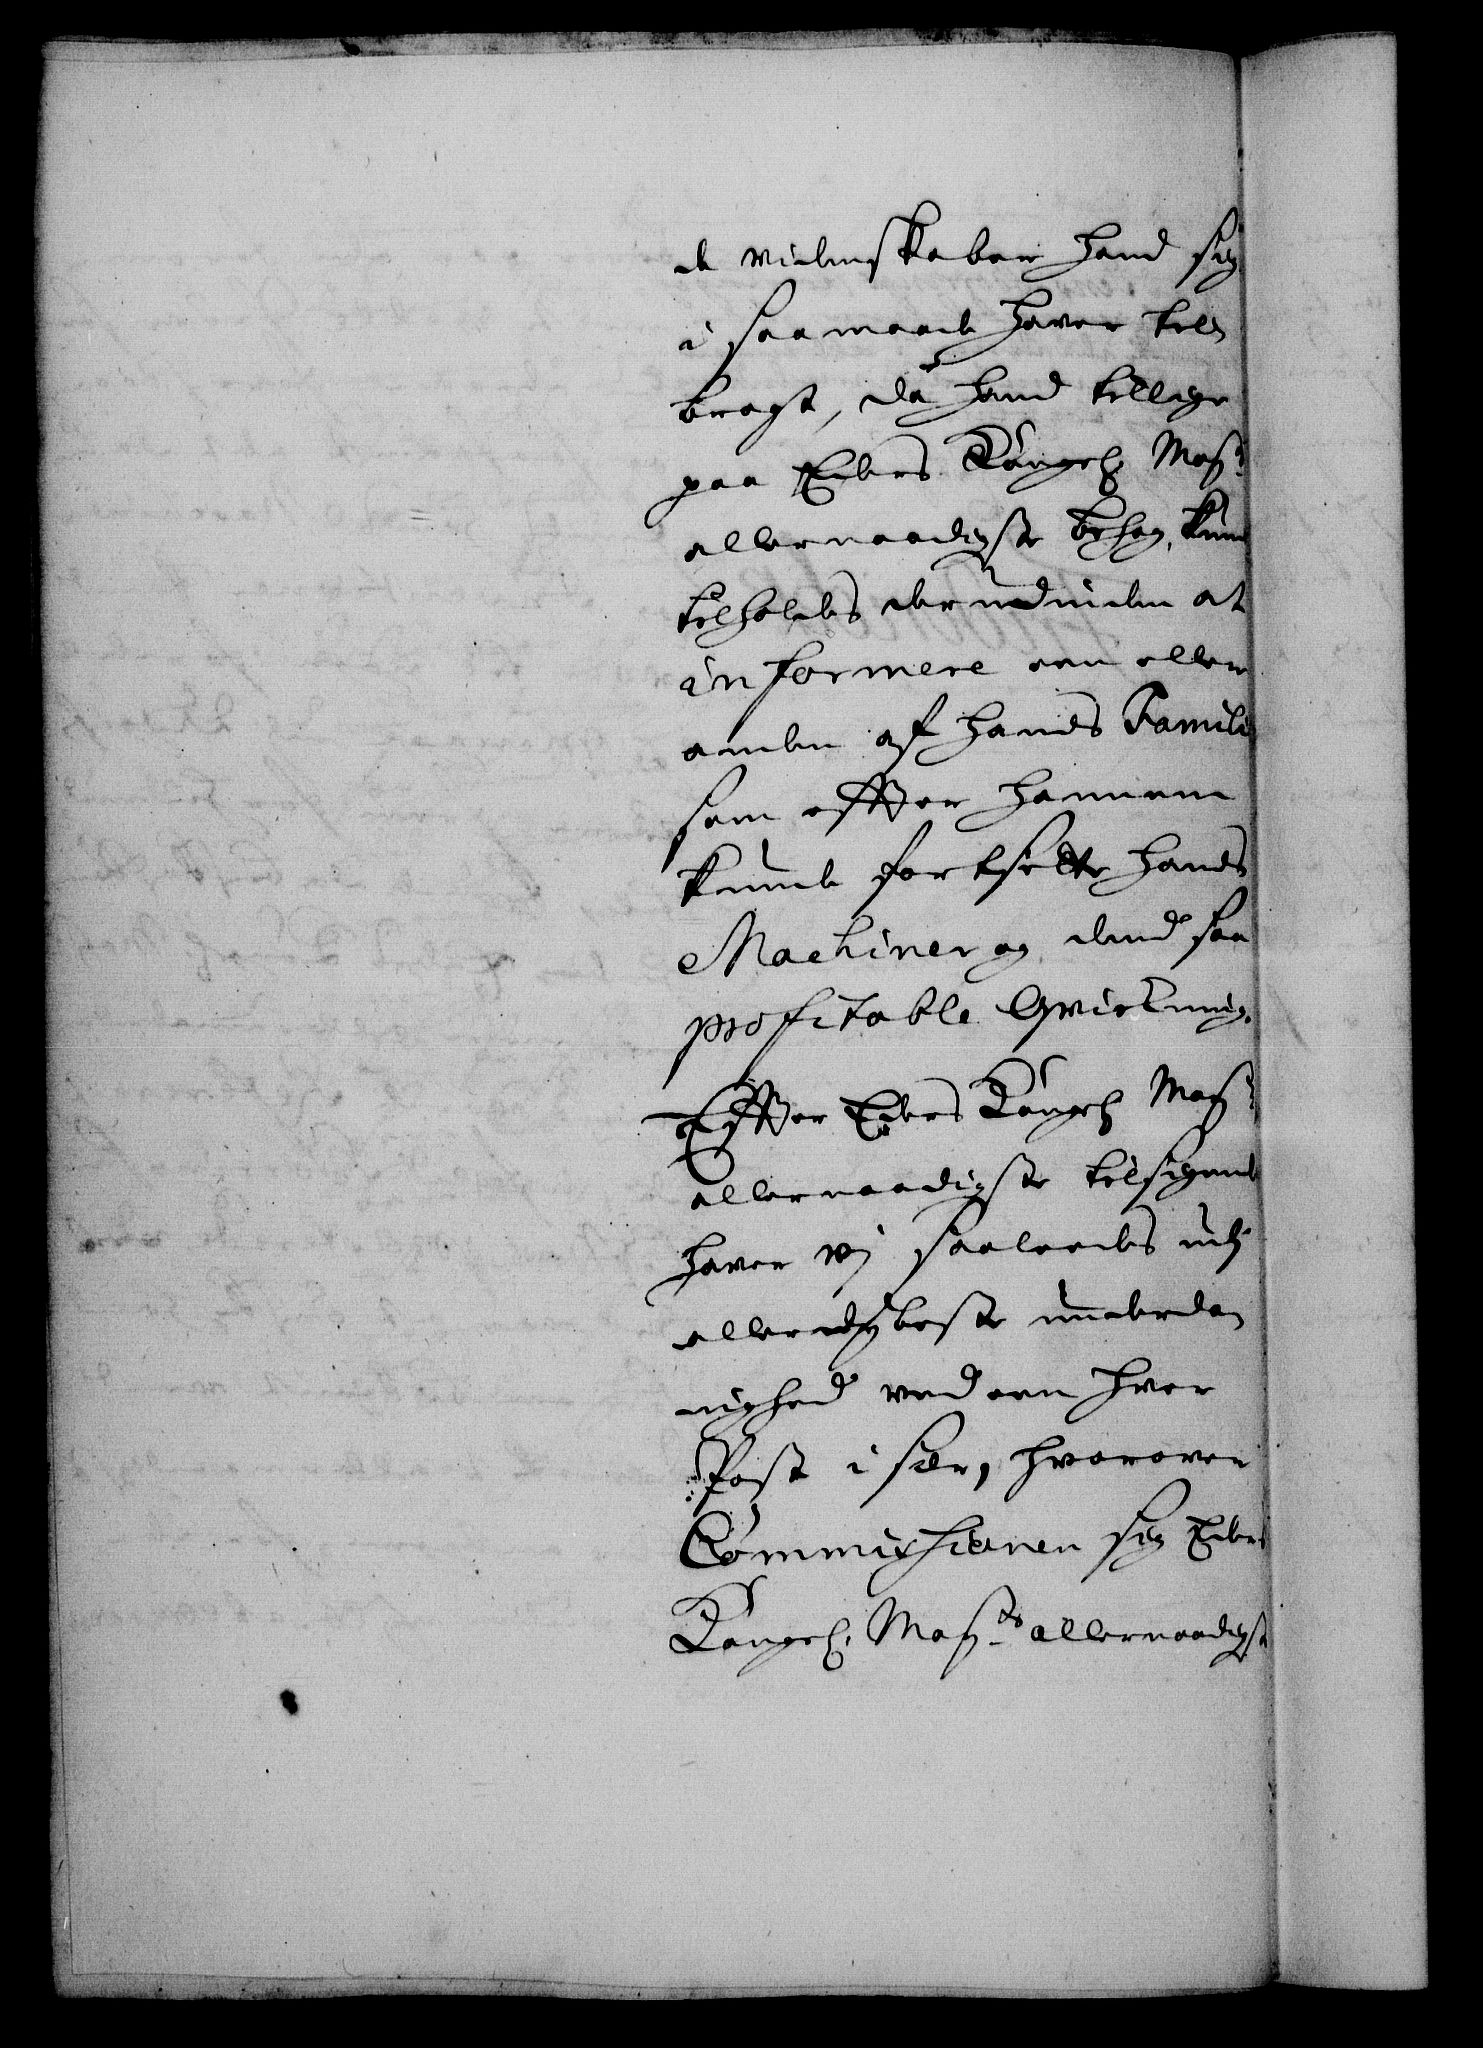 de videnskaber hand sig
i saa maade haver til
bragt, da hand tillige
paa Eders Kongel: Mayts
allernaadigste behag, kund
tilholdes der udinden at
informere een eller
anden af hands Famili
som effter hannem
kunde fortsette hands
Machiner og dend saa
profitable Gvickning.
Effter Eders Kongel Mayts
allernaadigste tilsigende
haver vj saaledes udj
allerdybeste underdan
nighed ved een hver
Post i sær, hvorover
Commissionen sig Eders
Kongel: Mayts allernaadigst